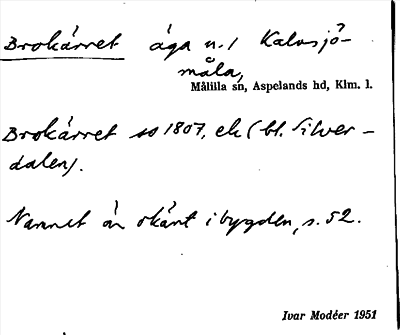 Brokärret äga n. 1 Kalvsjö-
måla,
Målilla sn, Aspelands hd, Klm. l.
Brokärret so 1807, ek (bl. Silver-
dalen).
Namnet är okänt i bygden, s. 52.
Ivar Modéer 1951